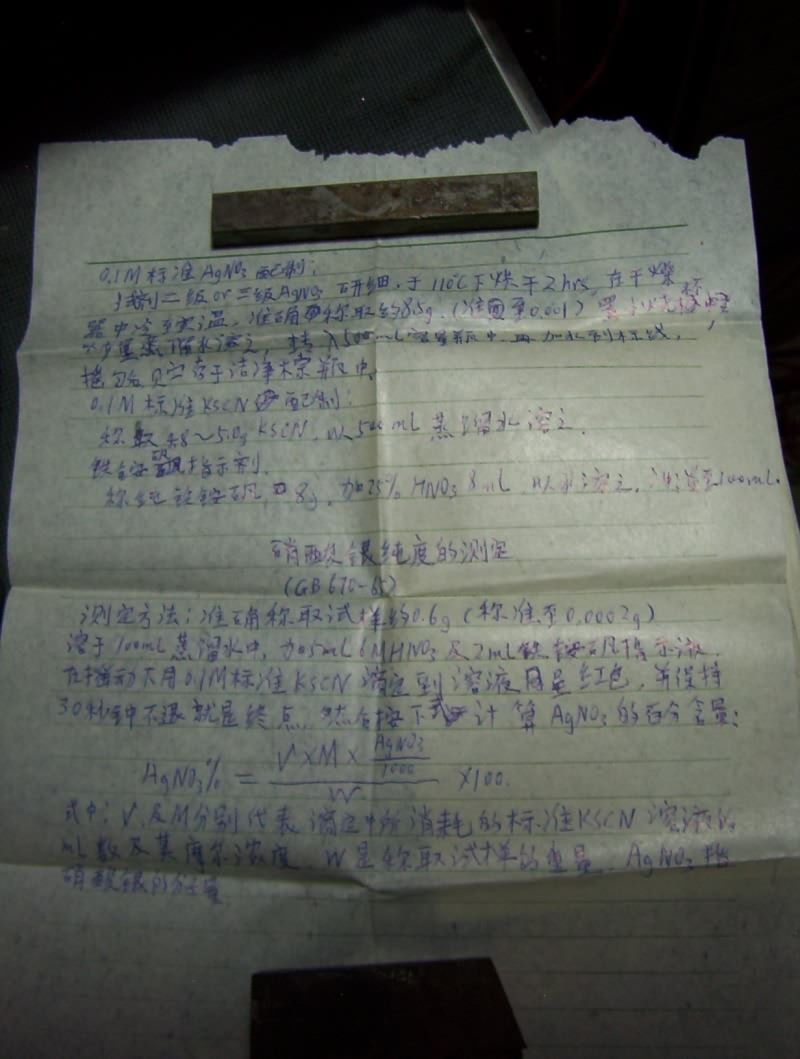 0.1M标准AgNO₃配制:
试剂二级or三级AgNO₃研细,于110℃下烘干2hrs,在干燥
器中冷至室温,准确称取约8.5g.(准至0.001)置于烧杯
少量蒸馏水溶之,转入500mL容量瓶中,加水到标线,
摇匀后贮存于洁净棕瓶中。
0.1M标准KSCN配制:
称取4.8~5.0g KSCN,以500mL蒸馏水溶之.
铁铵矾指示剂.
称铁铵矾8g,加25% HNO₃ 8mL,以水溶之,100mL.
硝酸银纯度的测定
(GB 670-65)
测定方法:准确称取试样约0.6g(称准至0.0002g)
溶于100mL蒸馏水中,加5mL 6M HNO₃及2mL铁铵矾指示液,
在摇动下用0.1M标准KSCN滴定到溶液呈红色,并保持
30秒钟不退就是终点,然后按下式计算AgNO₃的百分含量:
AgNO₃% = V×M×AgNO₃/1000 / W ×100.
式中:V及M分别代表滴定中所消耗的标准KSCN溶液的
mL数及其摩尔浓度.W是称取试样的重量.AgNO₃指
硝酸银的分子量